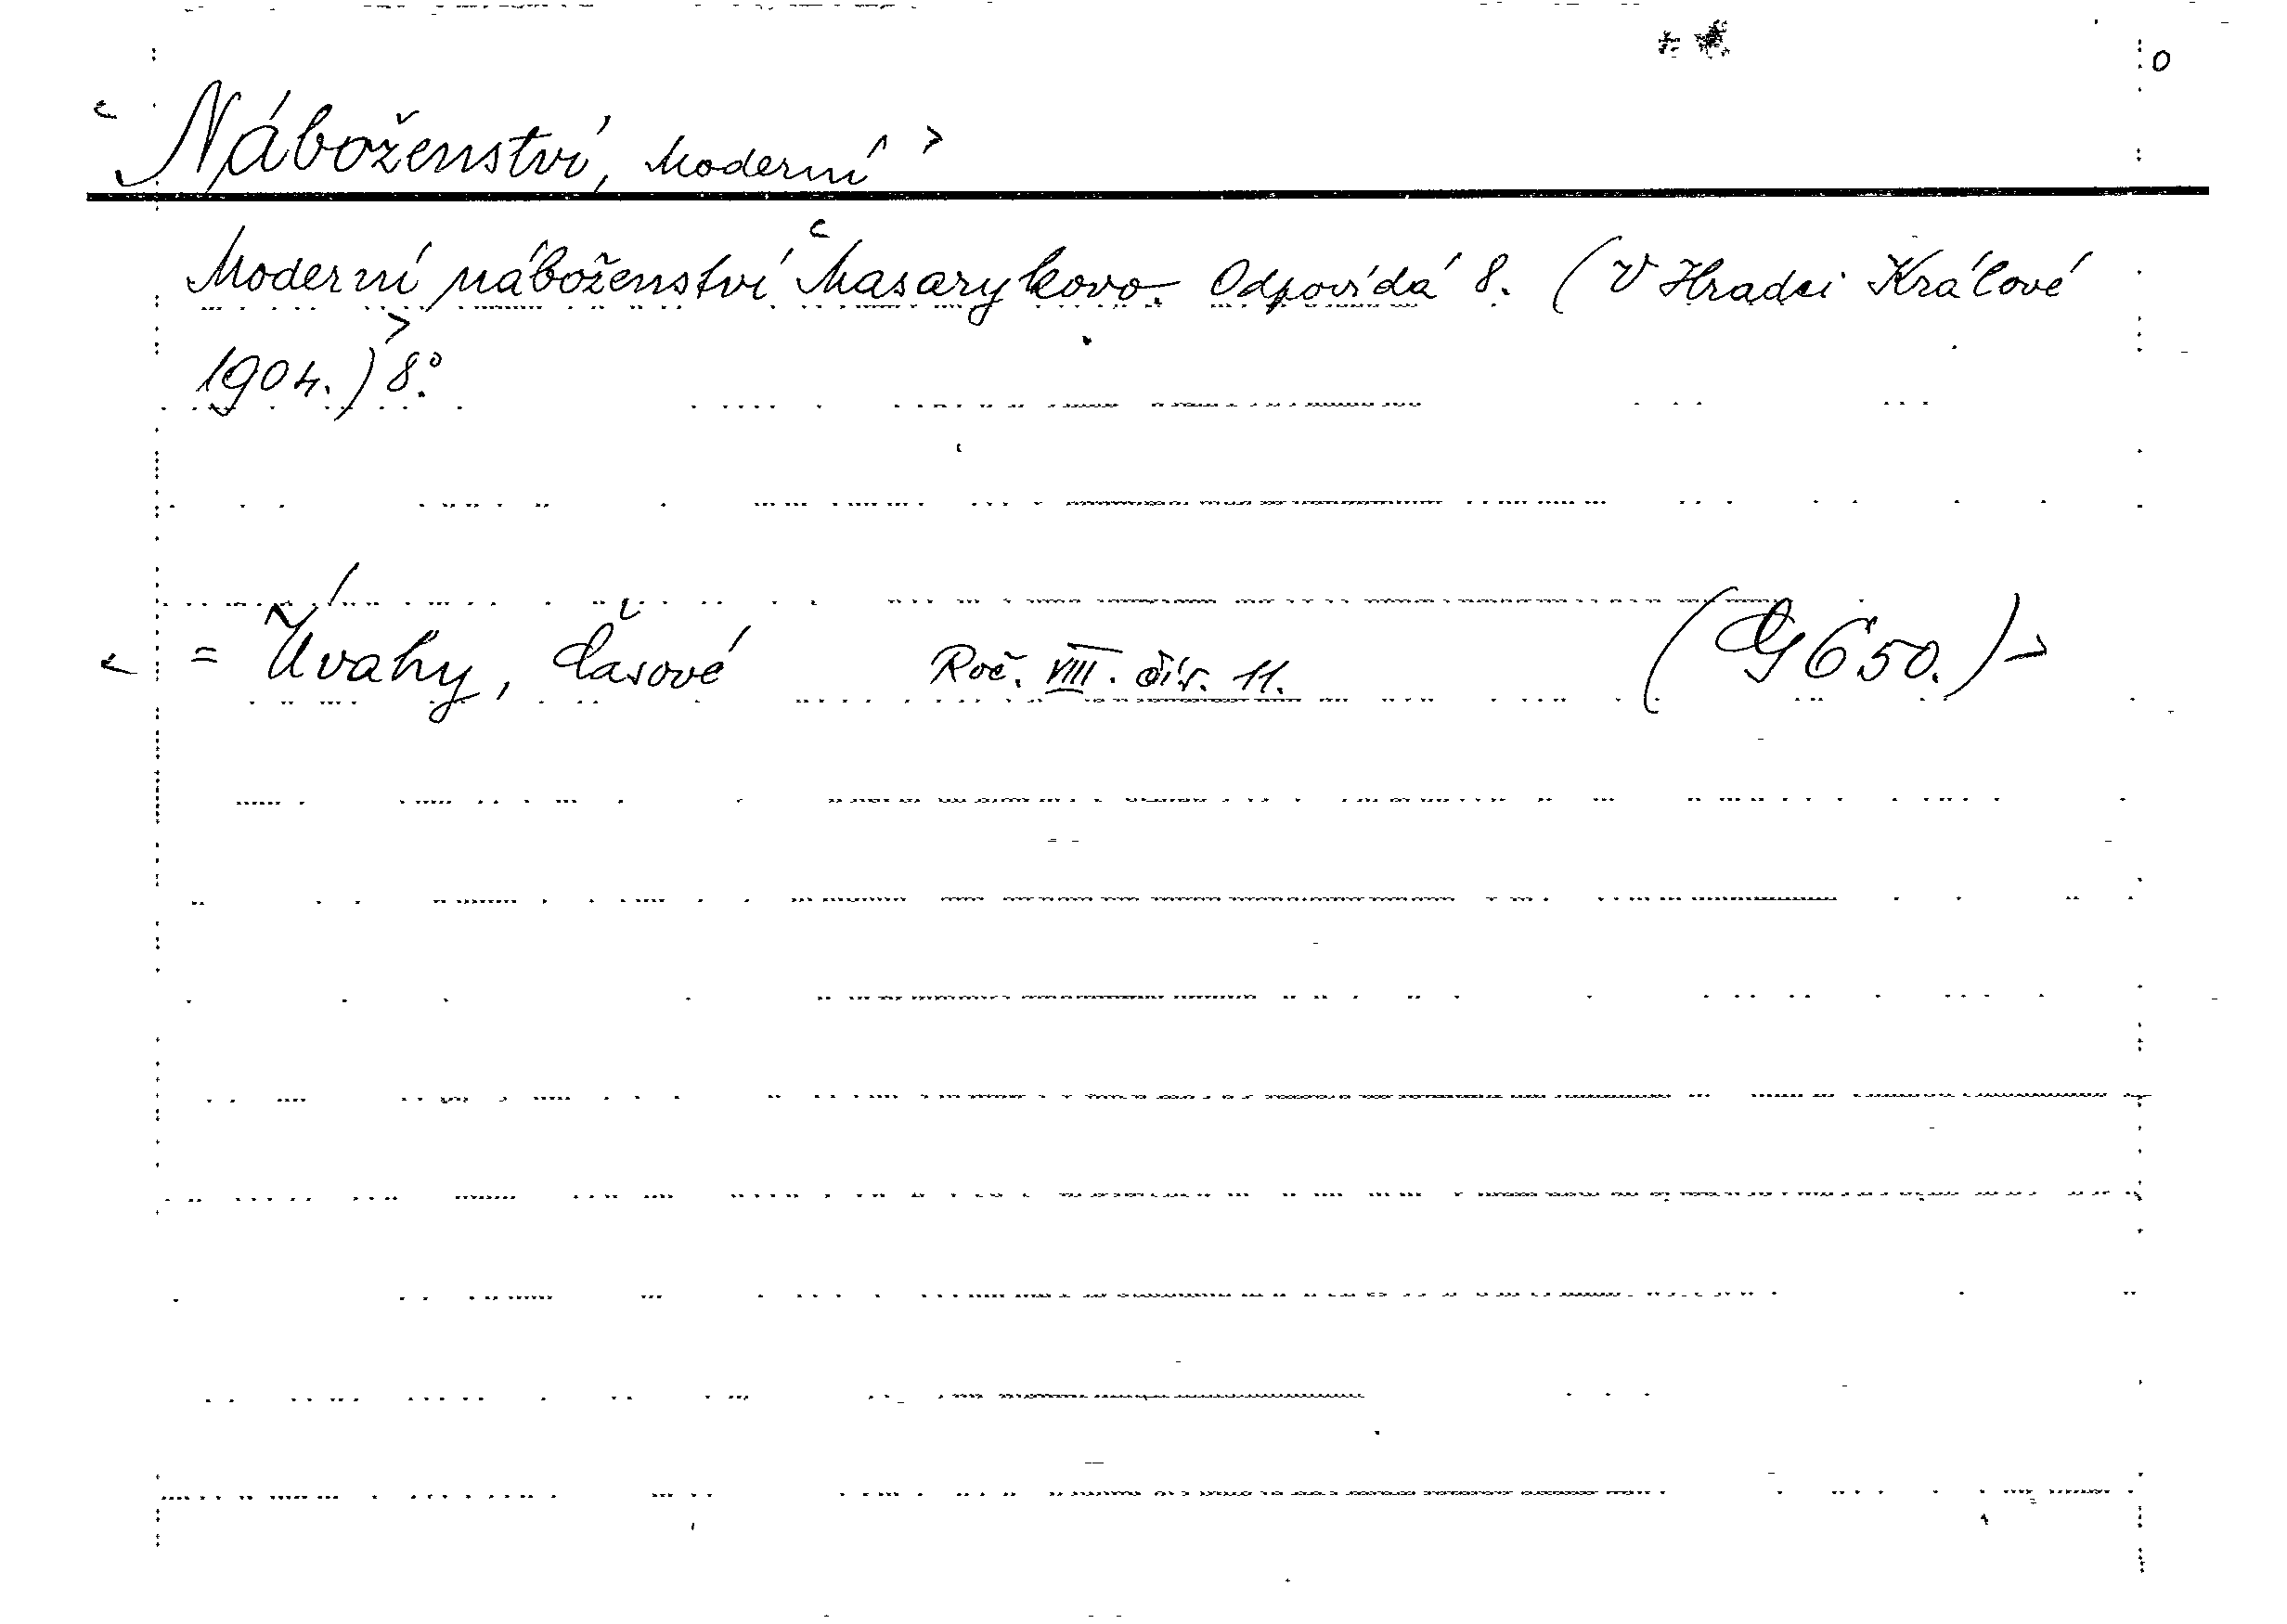 < Náboženství, Moderní >
Moderní náboženství < Masarykovo. Odpovídá 8. (V Hradci Králové
1904.) > 8°.
< = Úvahy, Časové Roč. VIII. čís. 11. (G 650.) >